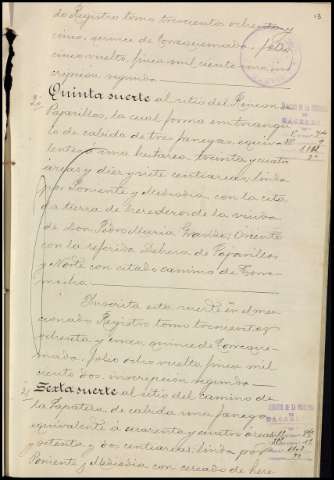 do Registro tomo trescientos ochenta y
cinco, quince de Torrequemada, folio
cinco vuelto, finca mil ciento una, ins
cripción segunda.
Quinta suerte al sitio del Rincon de
Paparillos, la cual forma un triangu
lo de cabida de tres fanegas, equiva
lentes á una hectarea, treinta y cuatro
areas y diez y siete centiareas; linda
por Poniente y Mediodia con la cita
da tierra de herederos de la viuda
de Don Pedro Maria ; Oriente
con la referida Dehesa de Paparillos
y Norte con citado camino de Torre
mocha.
Inscrita esta suerte en el men
cionado Registro tomo trescientos
ochenta y cinco, quince de Torreque
mada, folio ocho vuelto, finca mil
ciento dos, inscripción segunda.
Sexta suerte al sitio del Camino de
la Zapatera, de cabida una fanega
equivalente á cuarenta y cuatro areas
y setenta y dos centiareas; linda por
Poniente y Mediodia con cercado de here